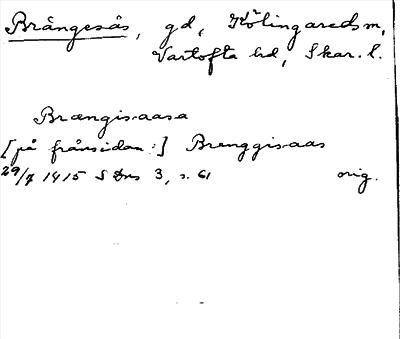 Brångesås, gd, Kölingareds sn,
Vartofta hd, Skar. l.
Brængisaasa
[på frånsidan:] Brenggisaas
29/7 1415 SDns 3, s. 61 orig.